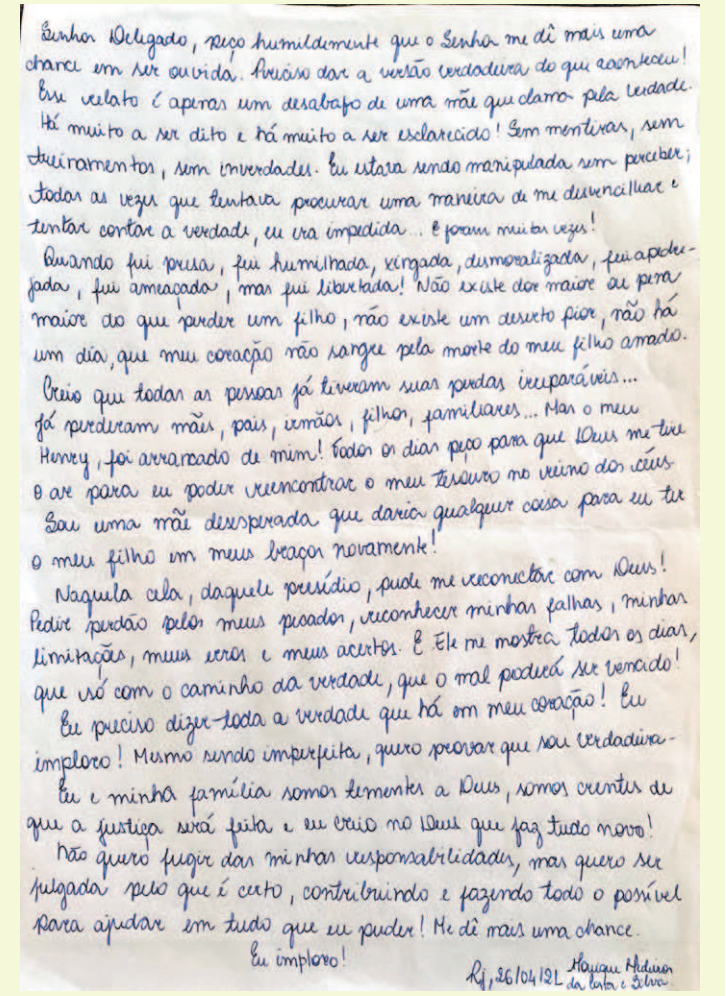 Senhor Delegado, peço humildemente que o Senhor me dê mais uma
chance em ser ouvida. Preciso dar a versão verdadeira do que aconteceu!
Esse relato é apenas um desabafo de uma mãe que clama pela verdade.
Há muito a ser dito e há muito a ser esclarecido! Sem mentiras, sem
treinamentos, sem inverdades. Eu estava sendo manipulada sem perceber;
todas as vezes que tentava procurar uma maneira de me desvencilhar e
tentar contar a verdade, eu era impedida... E foram muitas vezes!
Quando fui presa, fui humilhada, xingada, desmoralizada, fui apedre-
jada, fui ameaçada, mas fui libertada! Não existe dor maior ou pena
maior do que perder um filho, não existe um deserto pior, não há
um dia, que meu coração não sangre pela morte do meu filho amado.
Creio que todas as pessoas já tiveram suas perdas irreparáveis...
Já perderam mães, pais, irmãos, filhos, familiares... Mas o meu
Henry, foi arrancado de mim! Todos os dias peço para que Deus me tire
o ar para eu poder reencontrar o meu tesouro no reino dos céus.
Sou uma mãe desesperada que daria qualquer coisa para eu ter
o meu filho em meus braços novamente!
Naquela cela, daquele presídio, pude me reconectar com Deus!
Pedir perdão pelos meus pecados, reconhecer minhas falhas, minhas
limitações, meus erros e meus acertos. E Ele me mostra todos os dias,
que só com o caminho da verdade, que o mal poderá ser vencido!
Eu preciso dizer toda a verdade que há em meu coração! Eu
imploro! Mesmo sendo imperfeita, quero provar que sou verdadeira.
Eu e minha família somos tementes a Deus, somos crentes de
que a justiça será feita e eu creio no Deus que faz tudo novo!
Não quero fugir das minhas responsabilidades, mas quero ser
julgada pelo que é certo, contribuindo e fazendo todo o possível
para ajudar em tudo que eu puder! Me dê mais uma chance.
Eu imploro!
Rj, 26/04/21 Monique Medeiros
da Costa e Silva